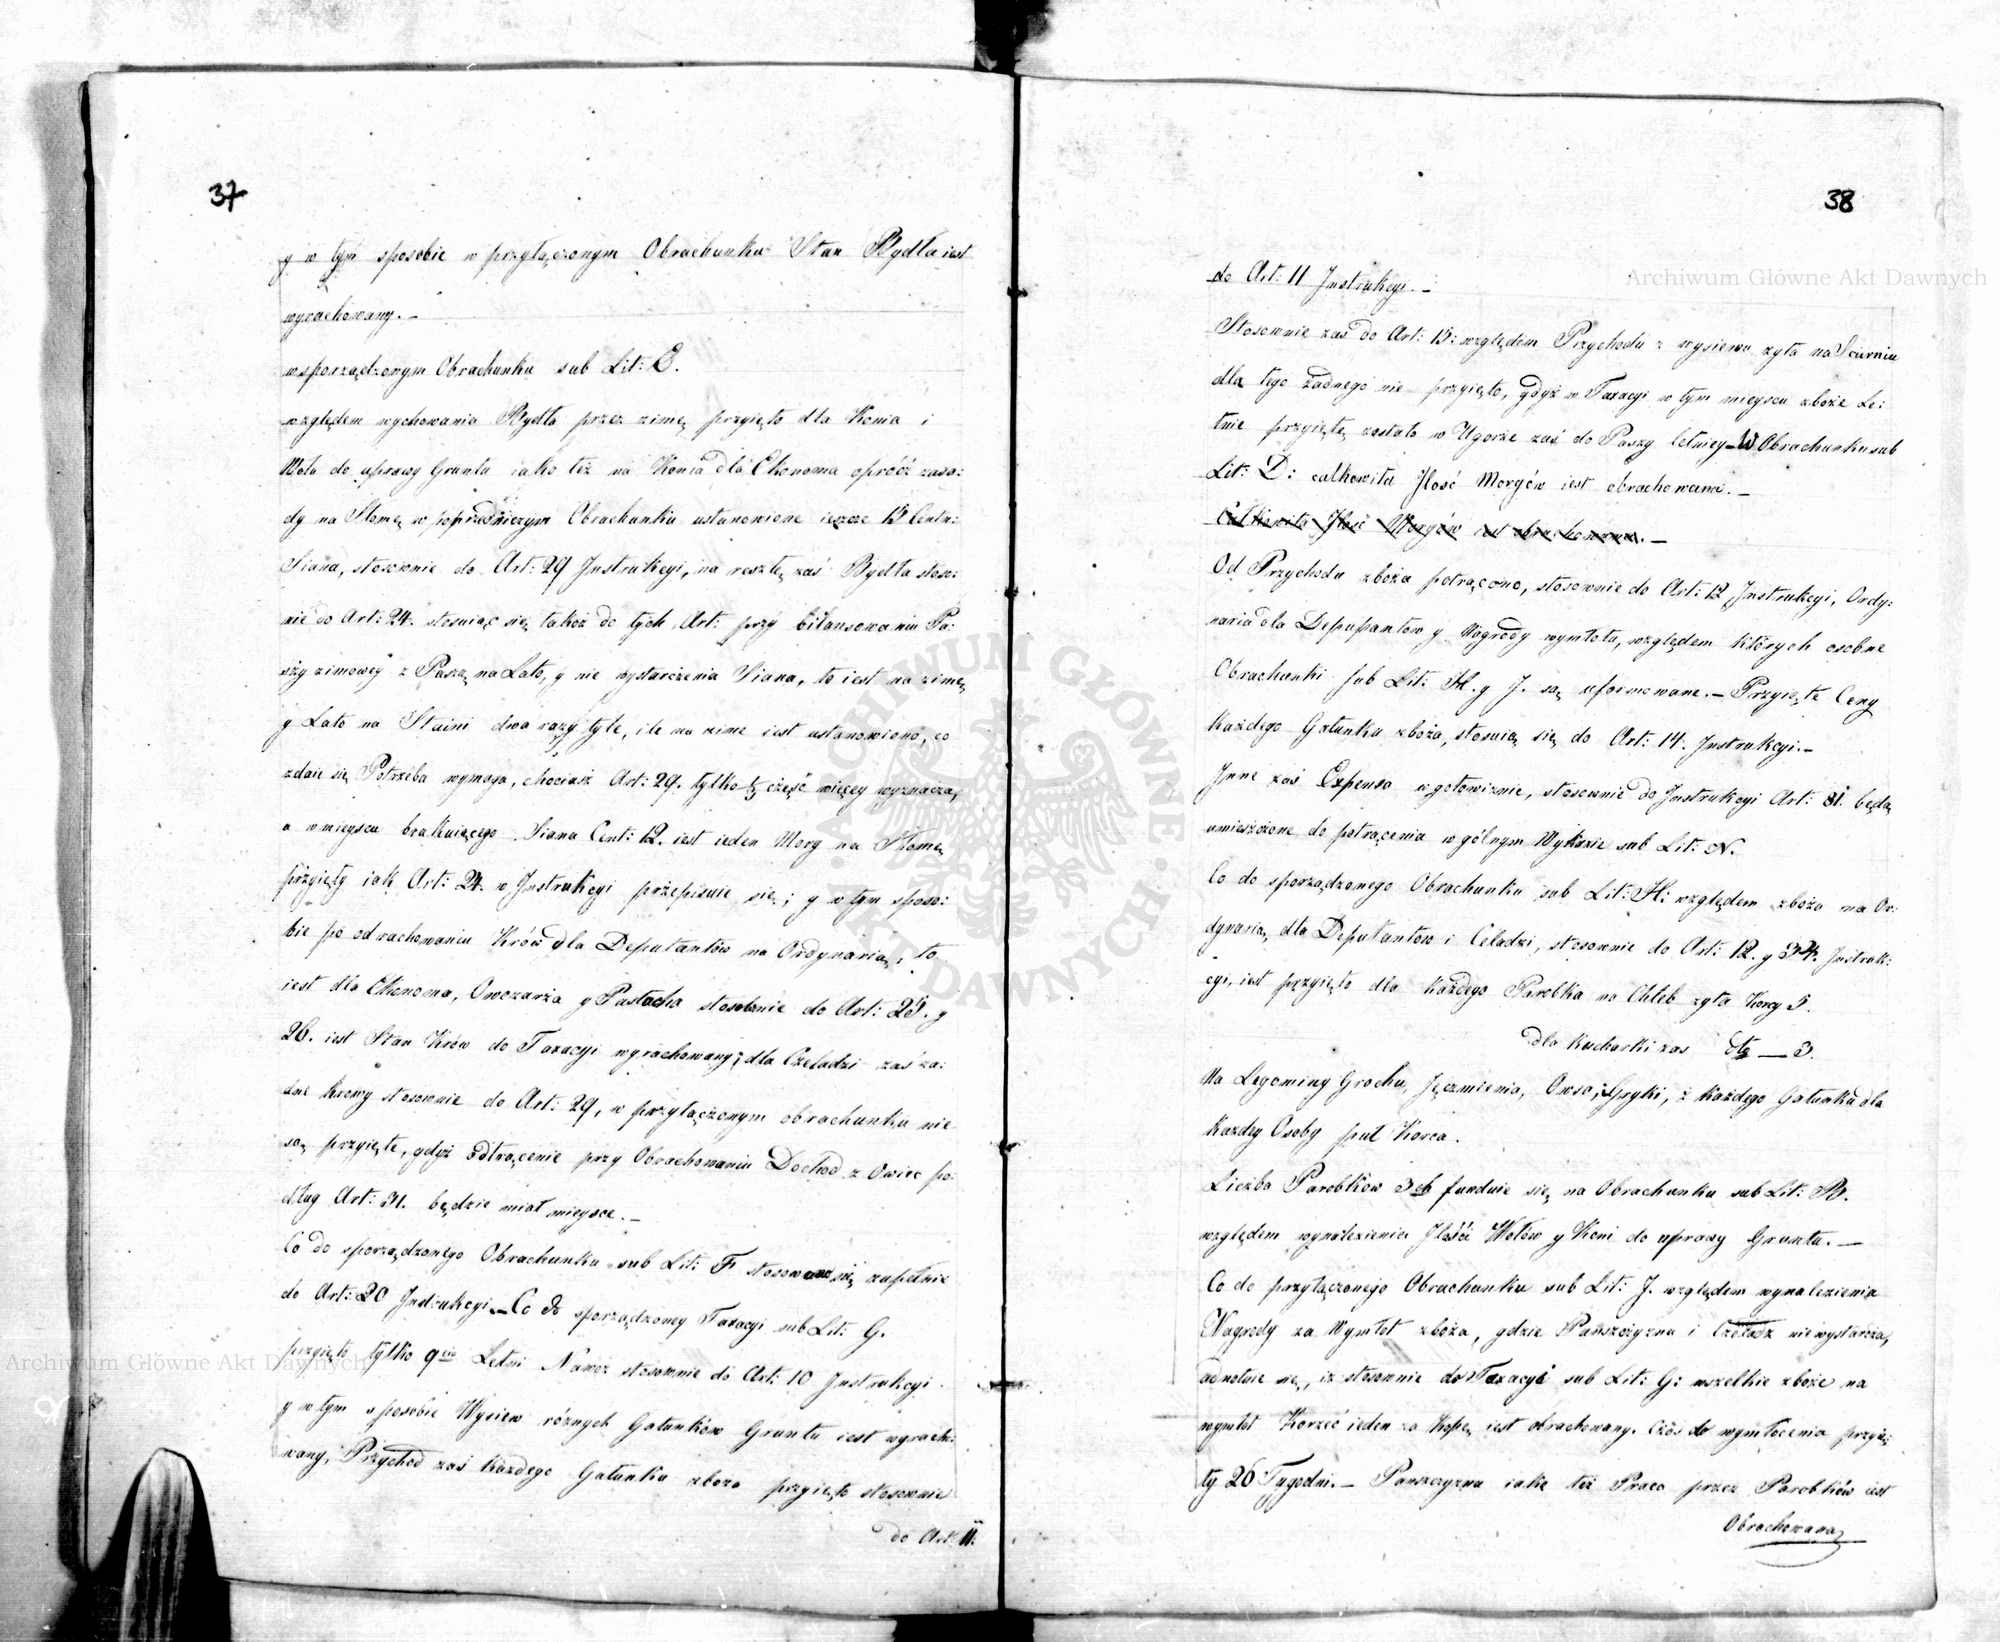 37
y w tym sposobie w przyłączonym Obrachunku Stan Bydła iest
wyrachowany. –
w sporządzonym Obrachunku sub Lit: E.
względem wychowania Bydła przez zimę, przyięto dla Konia i
Wołu do uprawy Gruntu iako też na Konia dla Ekonoma oprócz zaso:
dy na Słomę, w poprzedniczym Obrachunku ustanowione ieszcze 15 Centn:
Siana, stosownie do Art: 29 Instrukcyi, na resztę zaś Bydła stoso:
nie do Art: 24. stosuiąc się także do tych Art: przy bilansowaniu Pa:
szy zimowey z Paszą na Lato, y nie wystarczenia Siana, to iest na zimę
y Lato na Stáini dwa razy tyle, ile na zime iest ustanowiono, co
zdaie się Potrzeba wymaga, chociasz Art: 29. tylko część więcey wyznacza,
a w mieyscu brakuiącego Siana Cent: 12. iest ieden Morg na Słomę
przyięty iak Art: 24. w Instrukcyi przepisuie się; y w tym sposo:
bie po odrachowaniu Krów dla Deputantów na Ordynaria, to
iest dla Ekonoma, Owczarza y Pastucha stosownie do Art: 25. y
26. iest Stan Krów do Taxacyi wyrachowany; dla Czeladzi zaś ża:
dne krowy stosownie do Art: 29, w przyłączonym obrachunku nie
są przyięte, gdyż odtrącenie przy Obrachowaniu Dochod z Owiec po:
dług Art: 31. będzie miał mieysce. –
Co do sporządzonego Obrachunku sub Lit: F stosowano się zupełnie
do Art: 20 Instrukcyi. – Co do sporządzoney Taxacyi sub Lit: G.
przyięto tylko 9cio Letni Nawoz stosownie do Art: 10 Instrukcyi
y w tym sposobie Wysiew różnych Gatunków Gruntu iest wyracho:
wany, Przychod zaś każdego Gatunku zboża przyięto stosownie
do Art: 11.
38
do Art: 11 Instrukcyi. –
Stosownie zaś do Art: 15: względem Przychodu z wysiewu żyta na Scierniu
dla tego żadnego nie przyięto, gdyż w Taxacyi w tym mieyscu zboże Le:
tnie przyięte zostało w Ugorze zaś do Paszy letniey – W Obrachunku sub
Lit: D: całkowita Ilość Morgów iest obrachowana. –
Całkowita Ilość Morgów iest obrachowana. –
Od Przychodu zboża potrącono, stosownie do Art: 12 Instrukcyi, Ordy:
naria dla Deputantow y Nagrody wymłotu, względem których osobne
Obrachunki sub Lit: H. y J. są uformowane. – Przyięte Ceny
każdego Gatunku zboża, stosuią się do Art: 14. Instrukcyi. –
Inne zaś Expensa w gotowiznie, stosownie do Instrukcyi Art: 31. będą
umieszczone do potrącenia w gólnym Wykazie sub Lit: N.
Co do sporządzonego Obrachunku sub Lit: H: względem zboża na Or:
dynarią, dla Deputantow i Celadzi, stosownie do Art: 12. y 34. Instruk:
cyi, iest przyięto dla każdego Parobka na Chleb żyta Korcy 5.
dla Kucharki zas dtto — 3.
Na Legominy Grochu, Jęczmienia, Owsa, Gryki, z każdego Gatunku dla
każdey Osoby puł Korca.
Liczba Parobkow 3ch funduie się na Obrachunku sub Lit: B.
względem wynalezienia Ilości Wołów y Koni do uprawy Gruntu. –
Co do przyłączonego Obrachunku sub Lit: J. względem wynalezienia
Nagrody za Wymłot zboża, gdzie Pańszczyzna i Czeladz niewystarcza,
adnotuie się, iz stosownie do Taxacyi sub Lit: G: wszelkie zboże na
wymłot Korzec ieden za Kopę iest obrachowany. Czas do wymłocenia przyię:
ty 26 Tygodni. – Panszczyzna iako też Praca przez Parobków iest
Obrachowana
Archiwum Główne Akt Dawnych
Archiwum Główne Akt Dawnych
ARCHIWUM GŁÓWNE AKT DAWNYCH